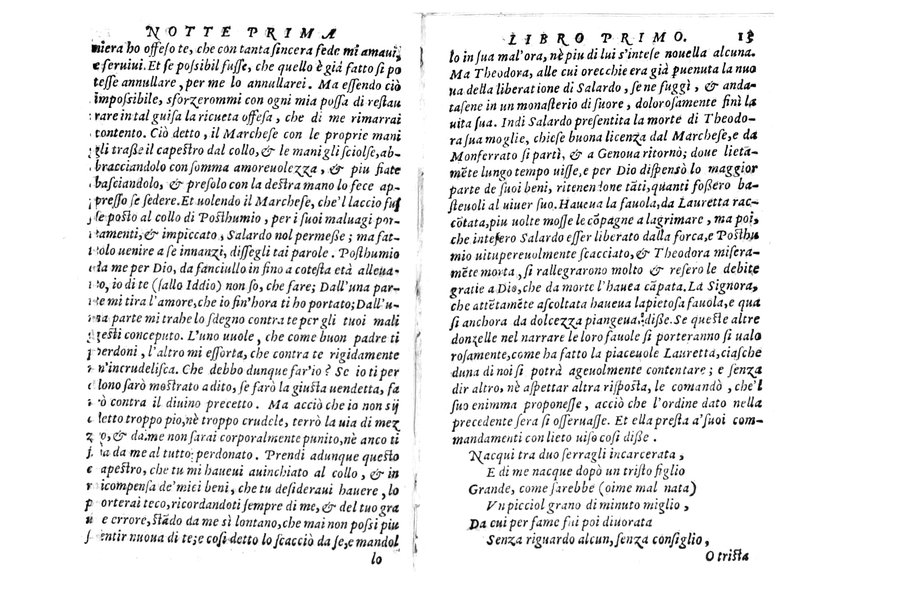 NOTTE PRIMA
niera ho offeso te, che con tanta sincera fede mi amaui,
e seruiui. Et se possibil fusse, che quello è già fatto si po
tesse annullare, per me lo annullarei. Ma essendo ciò
impossibile, sforzerommi con ogni mia possa di restau
rare in tal guisa la riceuta offesa, che di me rimarrai
contento. Ciò detto, il Marchese con le proprie mani
gli trasse il capestro dal collo, & le mani gli sciolse, ab-
bracciandolo con somma amoreuolezza, & piu fiate
basciandolo, & presolo con la destra mano lo fece ap-
presso se sedere. Et uolendo il Marchese, che'l laccio fus
se posto al collo di Posthumio, per i suoi maluagi por-
tamenti, & impiccato, Salardo nol permesse; ma fat-
tolo uenire a se innanzi, dissegli tai parole. Posthumio
da me per Dio, da fanciullo in fino a cotesta età alleua-
to, io di te (sallo Iddio) non so, che fare; Dall'una par-
te mi tira l'amore, che io fin'hora ti ho portato; Dall'u-
na parte mi trahe lo sdegno contra te per gli tuoi mali
gesti conceputo. L'uno uuole, che come buon padre ti
perdoni, l'altro mi essorta, che contra te rigidamente
m'incrudelisca. Che debbo dunque far'io? Se io ti per
dono sarò mostrato a dito, se farò la giusta uendetta, fa
rò contra il diuino precetto. Ma acciò che io non sij
detto troppo pio, nè troppo crudele, terrò la uia di mez
zo, & da me non sarai corporalmente punito, nè anco ti
sia da me al tutto perdonato. Prendi adunque questo
capestro, che tu mi haueui auinchiato al collo, & in
ricompensa de'miei beni, che tu desideraui hauere, lo
porterai teco, ricordandoti sempre di me, & del tuo gra
ue errore, stādo da me sì lontano, che mai non possi piu
sentir nuoua di te; e cosi detto lo scacciò da se, e mandol
lo
LIBRO PRIMO. 13
lo in sua mal'ora, nè piu di lui s'intese nouella alcuna.
Ma Theodora, alle cui orecchie era già puenuta la nuo
ua della liberatione di Salardo, se ne fuggì, & anda-
tasene in un monasterio di suore, dolorosamente finì la
uita sua. Indi Salardo presentita la morte di Theodo-
ra sua moglie, chiese buona licenza dal Marchese, e da
Monferrato si partì, & a Genoua ritornò; doue lieta-
mēte lungo tempo uisse, e per Dio dispensò lo maggior
parte de suoi beni, ritenendone tāti, quanti fossero ba-
steuoli al uiuer suo. Haueua la fauola, da Lauretta rac-
cōtata, piu uolte mosse le cōpagne a lagrimare, ma poi,
che intesero Salardo esser liberato dalla forca, e Posthu
mio uituperevolmente scacciato, & Theodora misera-
mēte morta, si rallegrarono molto & resero le debite
gratie a Dio, che da morte l'hauea cāpata. La Signora,
che attētamēte ascoltata haueua la pietosa fauola, e qua
si anchora da dolcezza piangeua, disse. Se queste altre
donzelle nel narrare le loro fauole si porteranno sì ualo
rosamente, come ha fatto la piaceuole Lauretta, ciasche
duna di noi si potrà ageuolmente contentare; e senza
dir altro, nè aspettar altra risposta, le comandò, che'l
suo enimma proponesse, acciò che l'ordine dato nella
precedente sera si osseruasse. Et ella presta a'suoi com-
mandamenti con lieto uiso cosi disse.
Nacqui tra duo serragli incarcerata,
E di me nacque dopò un tristo figlio
Grande, come sarebbe (oime mal nata)
Vn picciol grano di minuto miglio,
Da cui per fame fui poi diuorata
Senza riguardo alcun, senza consiglio,
O trista